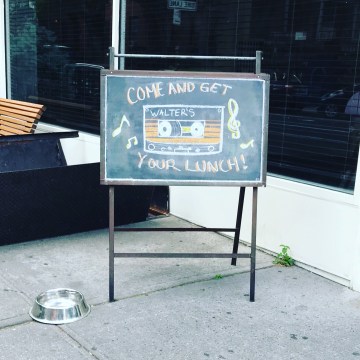 COME AND GET
WALTER'S
YOUR LUNCH!